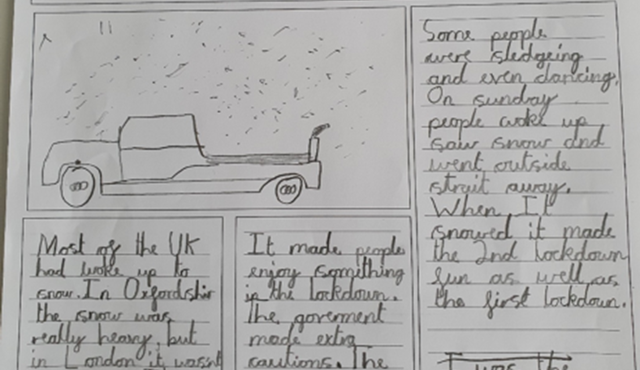 Most of the UK
had woke up to
snow. In Oxfordshir
the snow was
really heavy, but
in London it wasnt
It made people
enjoy something
in the lockdown.
The goverment
made extra
cautions. The
Some people
were sledgeing
and even dancing.
On sunday
people woke up
saw snow and
went outside
strait away.
When It
snowed it made
the 2nd lockdown
fun as well as
the first lockdown.
I was the